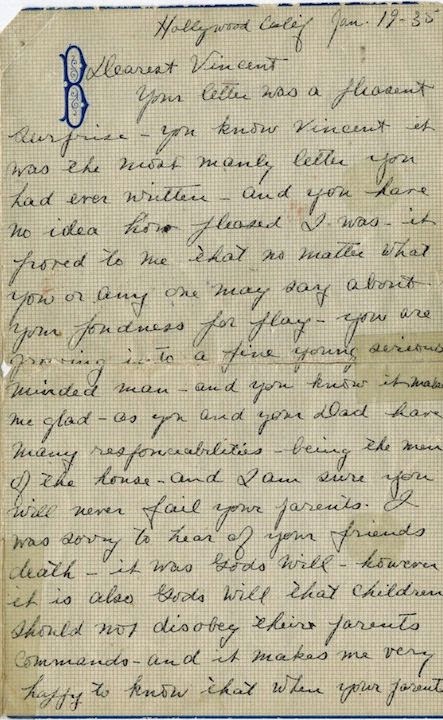 Hollywood Calif Jan. 19-35
B
Dearest Vincent
Your letter was a pleasent
surprise - you know Vincent it
was the most manly letter you
had ever written - and you have
no idea how pleased I was - it
proved to me that no matter what
you or any one may say about
your fondness for play - you are
growing into a fine young serious
minded man - and you know it make
me glad - as you and your Dad have
many responceabilities - being the men
of the house - and I am sure you
will never fail your parents. I
was sorry to hear of your friends
death - it was Gods will - however
it is also Gods will that children
should not disobey their parents
commands - and it makes me very
happy to know that when your parents